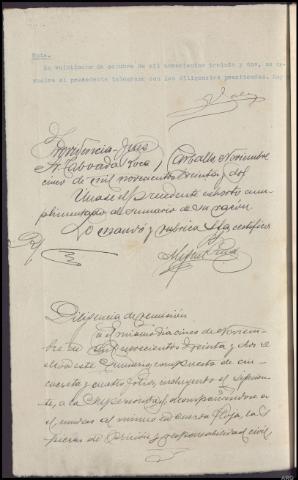 Nota.
En veintinueve de octubre de mil novecientos treinta y dos, se de-
vuelve el precedente telegrama con las diligencias practicadas. Doy
Providencia Juez
Sr. Taboada Roca
Carballo Noviembre
cinco de mil novecientos treinta y dos
Unase el precedente exhorto cum-
plimentado al sumario de su razón
Lo mandó y rubrica S.Sª certifico
Diligencia de remisión
En el mismo dia cinco de Noviem-
bre de mil novecientos treinta y dos se
remite este sumario compuesto de cin-
cuenta y cuatro folios, incluyendo el siguien-
te, a la Superioridad, acompañandose a
el mismo en cuerda floja, las
piezas de prisión y responsabilidad civil